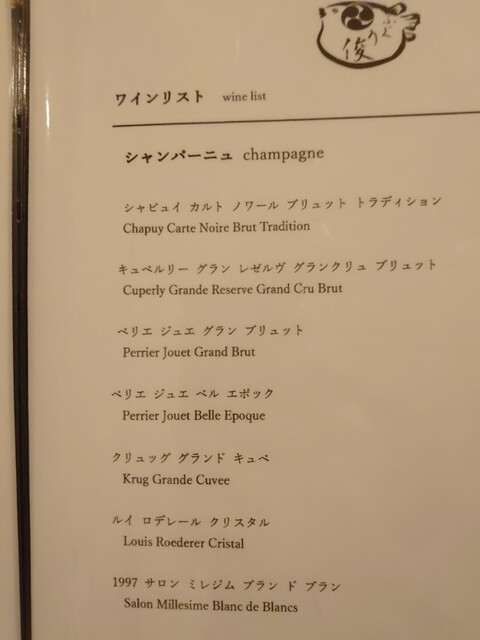 ふぐ
俊
ワインリスト wine list
シャンパーニュ champagne
シャピュイ カルト ノワール ブリュット トラディション
Chapuy Carte Noire Brut Tradition
キュペルリー グラン レゼルヴ グランクリュ ブリュット
Cuperly Grande Reserve Grand Cru Brut
ペリエ ジュエ グラン ブリュット
Perrier Jouet Grand Brut
ペリエ ジュエ ベル エポック
Perrier Jouet Belle Epoque
クリュッグ グランド キュベ
Krug Grande Cuvee
ルイ ロデレール クリスタル
Louis Roederer Cristal
1997 サロン ミレジム ブラン ド ブラン
Salon Millesime Blanc de Blancs